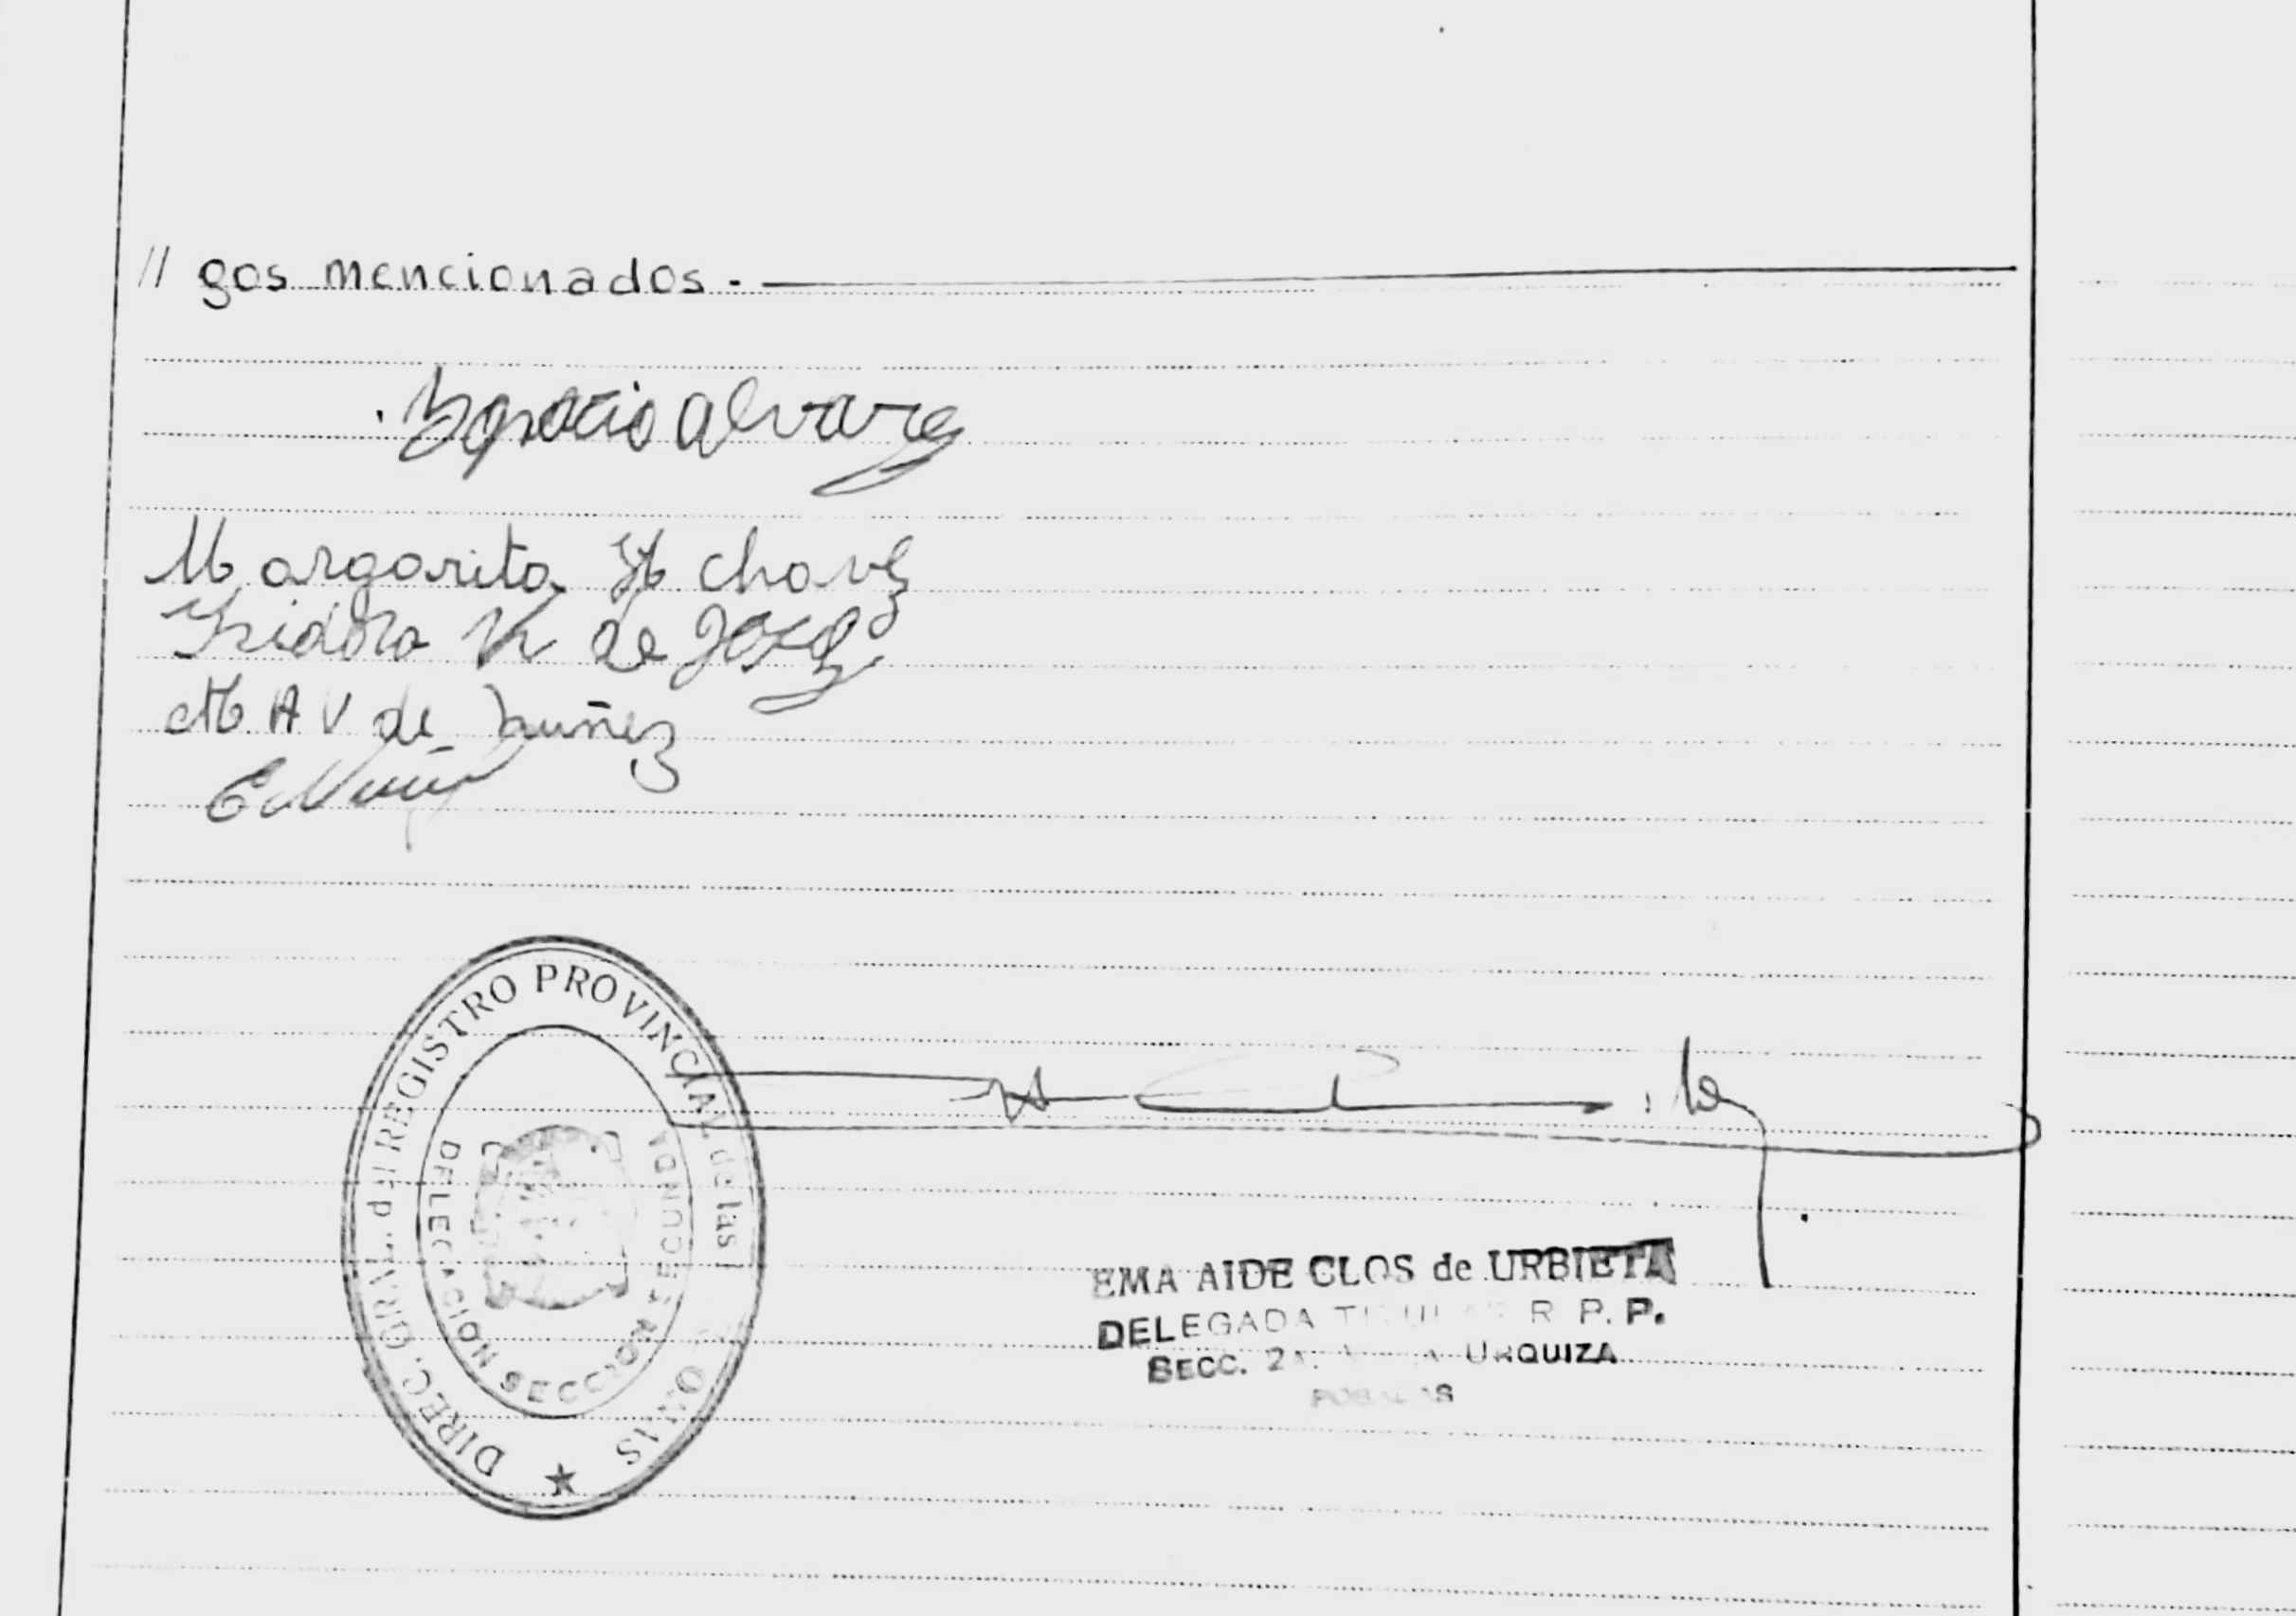 // gos mencionados.-
Ygnacio alvarez
Margarita H chavez
Ysidora V. de
M A V de Nuñez
E Nuñez
DIREC. GRAL. del REGISTRO PROVINCIAL de las
DELEGACION SECCION SEGUNDA
EMA AIDE CLOS de URBIETA
DELEGADA TITULAR R. P. P.
SECC. 2ª. URQUIZA
POSADAS